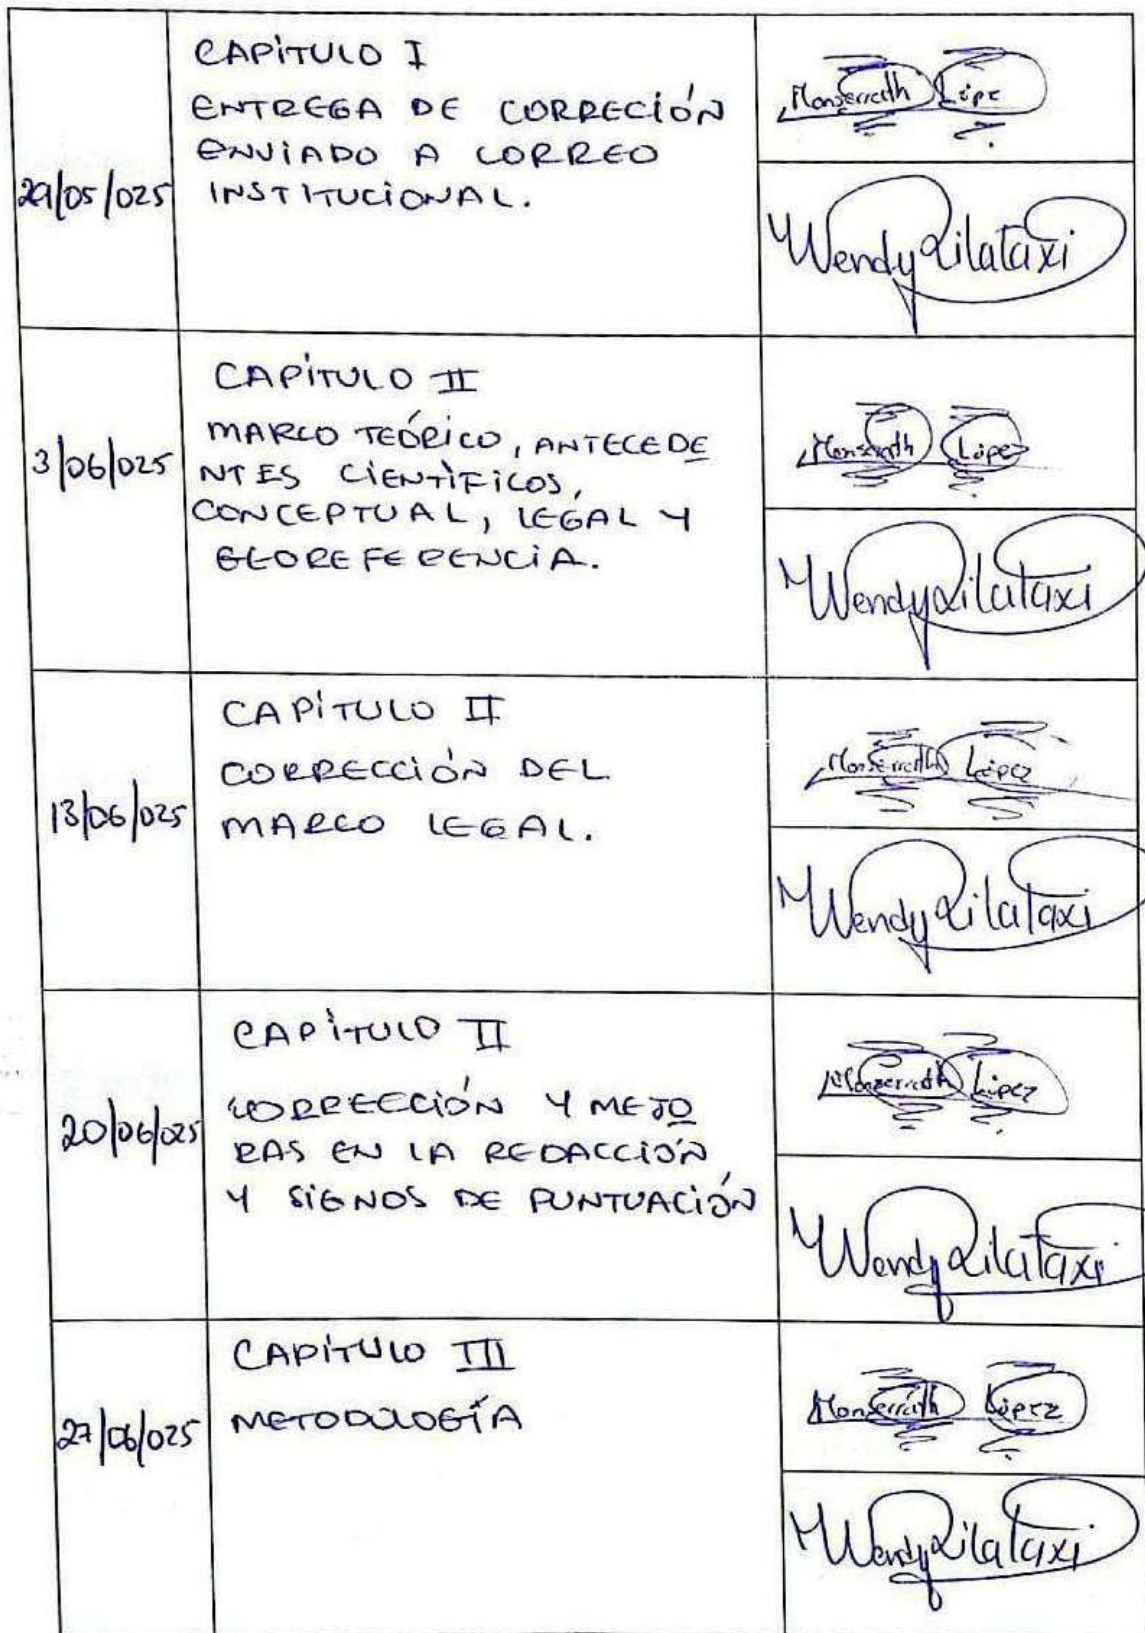 CAPÍTULO I
ENTREGA DE CORRECIÓN
ENVIADO A CORREO
INSTITUCIONAL.
29/05/025
Monserrath López
Wendy Pilataxi
CAPÍTULO II
MARCO TEÓRICO, ANTECEDE
NTES CIENTÍFICOS,
CONCEPTUAL, LEGAL Y
GEOREFERENCIA.
3/06/025
Monserrath López
Wendy Pilataxi
CAPÍTULO II
CORRECCIÓN DEL
MARCO LEGAL.
13/06/025
Monserrath López
Wendy Pilataxi
CAPÍTULO II
CORRECCIÓN Y MEJO
RAS EN LA REDACCIÓN
Y SIGNOS DE PUNTUACIÓN
20/06/025
Monserrath López
Wendy Pilataxi
CAPÍTULO III
METODOLOGÍA
27/06/025
Monserrath López
Wendy Pilataxi